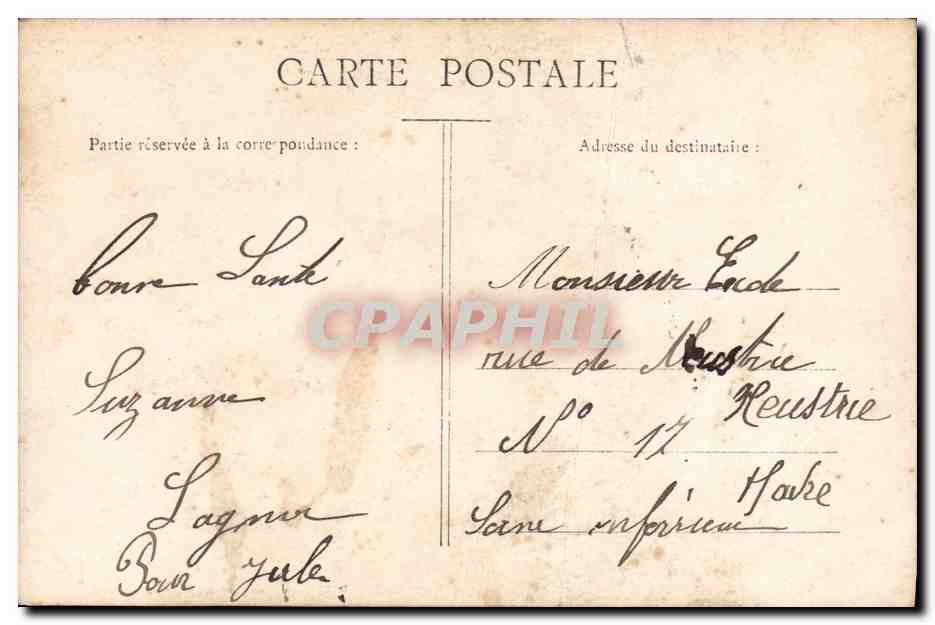 CARTE POSTALE
Partie réservée à la correspondance :
Adresse du destinataire :
bonne Santé
Suzanne
Pour Jule
Monsieur Eude
rue de Neustrie
Neustrie
N° 17
Havre
Seine inférieure
CPAPHIL